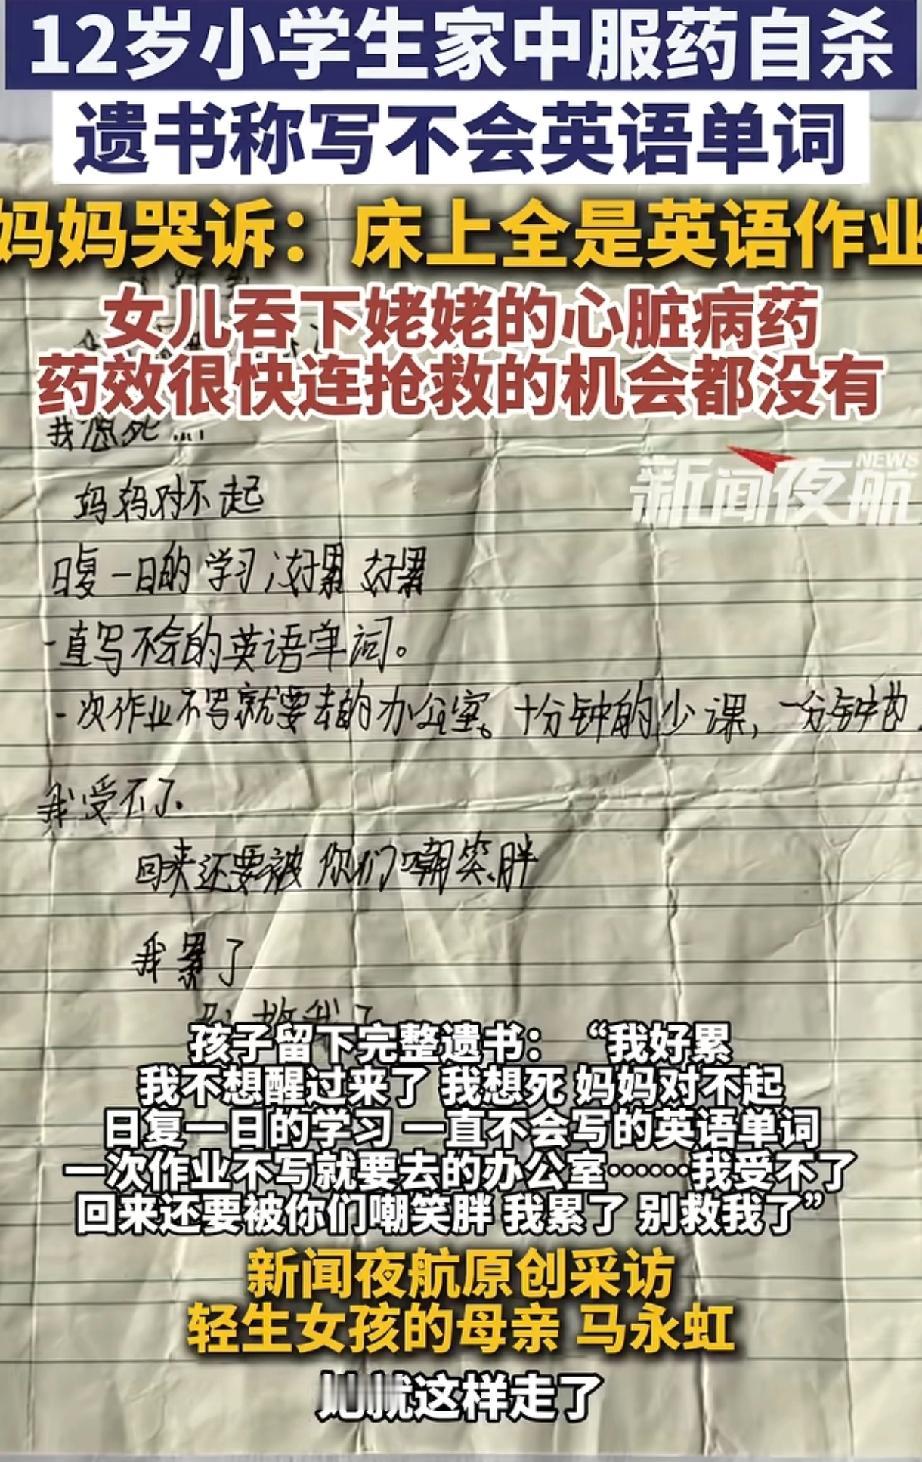 12岁小学生家中服药自杀
遗书称写不会英语单词
妈妈哭诉：床上全是英语作业
女儿吞下姥姥的心脏病药
药效很快连抢救的机会都没有
我想死....
NEWS
新闻夜航
妈妈对不起
日复一日的学习，好累 好累
一直写不会的英语单词。
一次作业不写就要去的办公室。十分钟的少课，一分钟
我受不了.
回来还要被你们嘲笑胖
我累了
救我了
孩子留下完整遗书：“我好累
我不想醒过来了 我想死 妈妈对不起
日复一日的学习 一直不会写的英语单词
一次作业不写就要去的办公室……我受不了
回来还要被你们嘲笑胖 我累了 别救我了”
新闻夜航原创采访
轻生女孩的母亲 马永虹
就这样走了